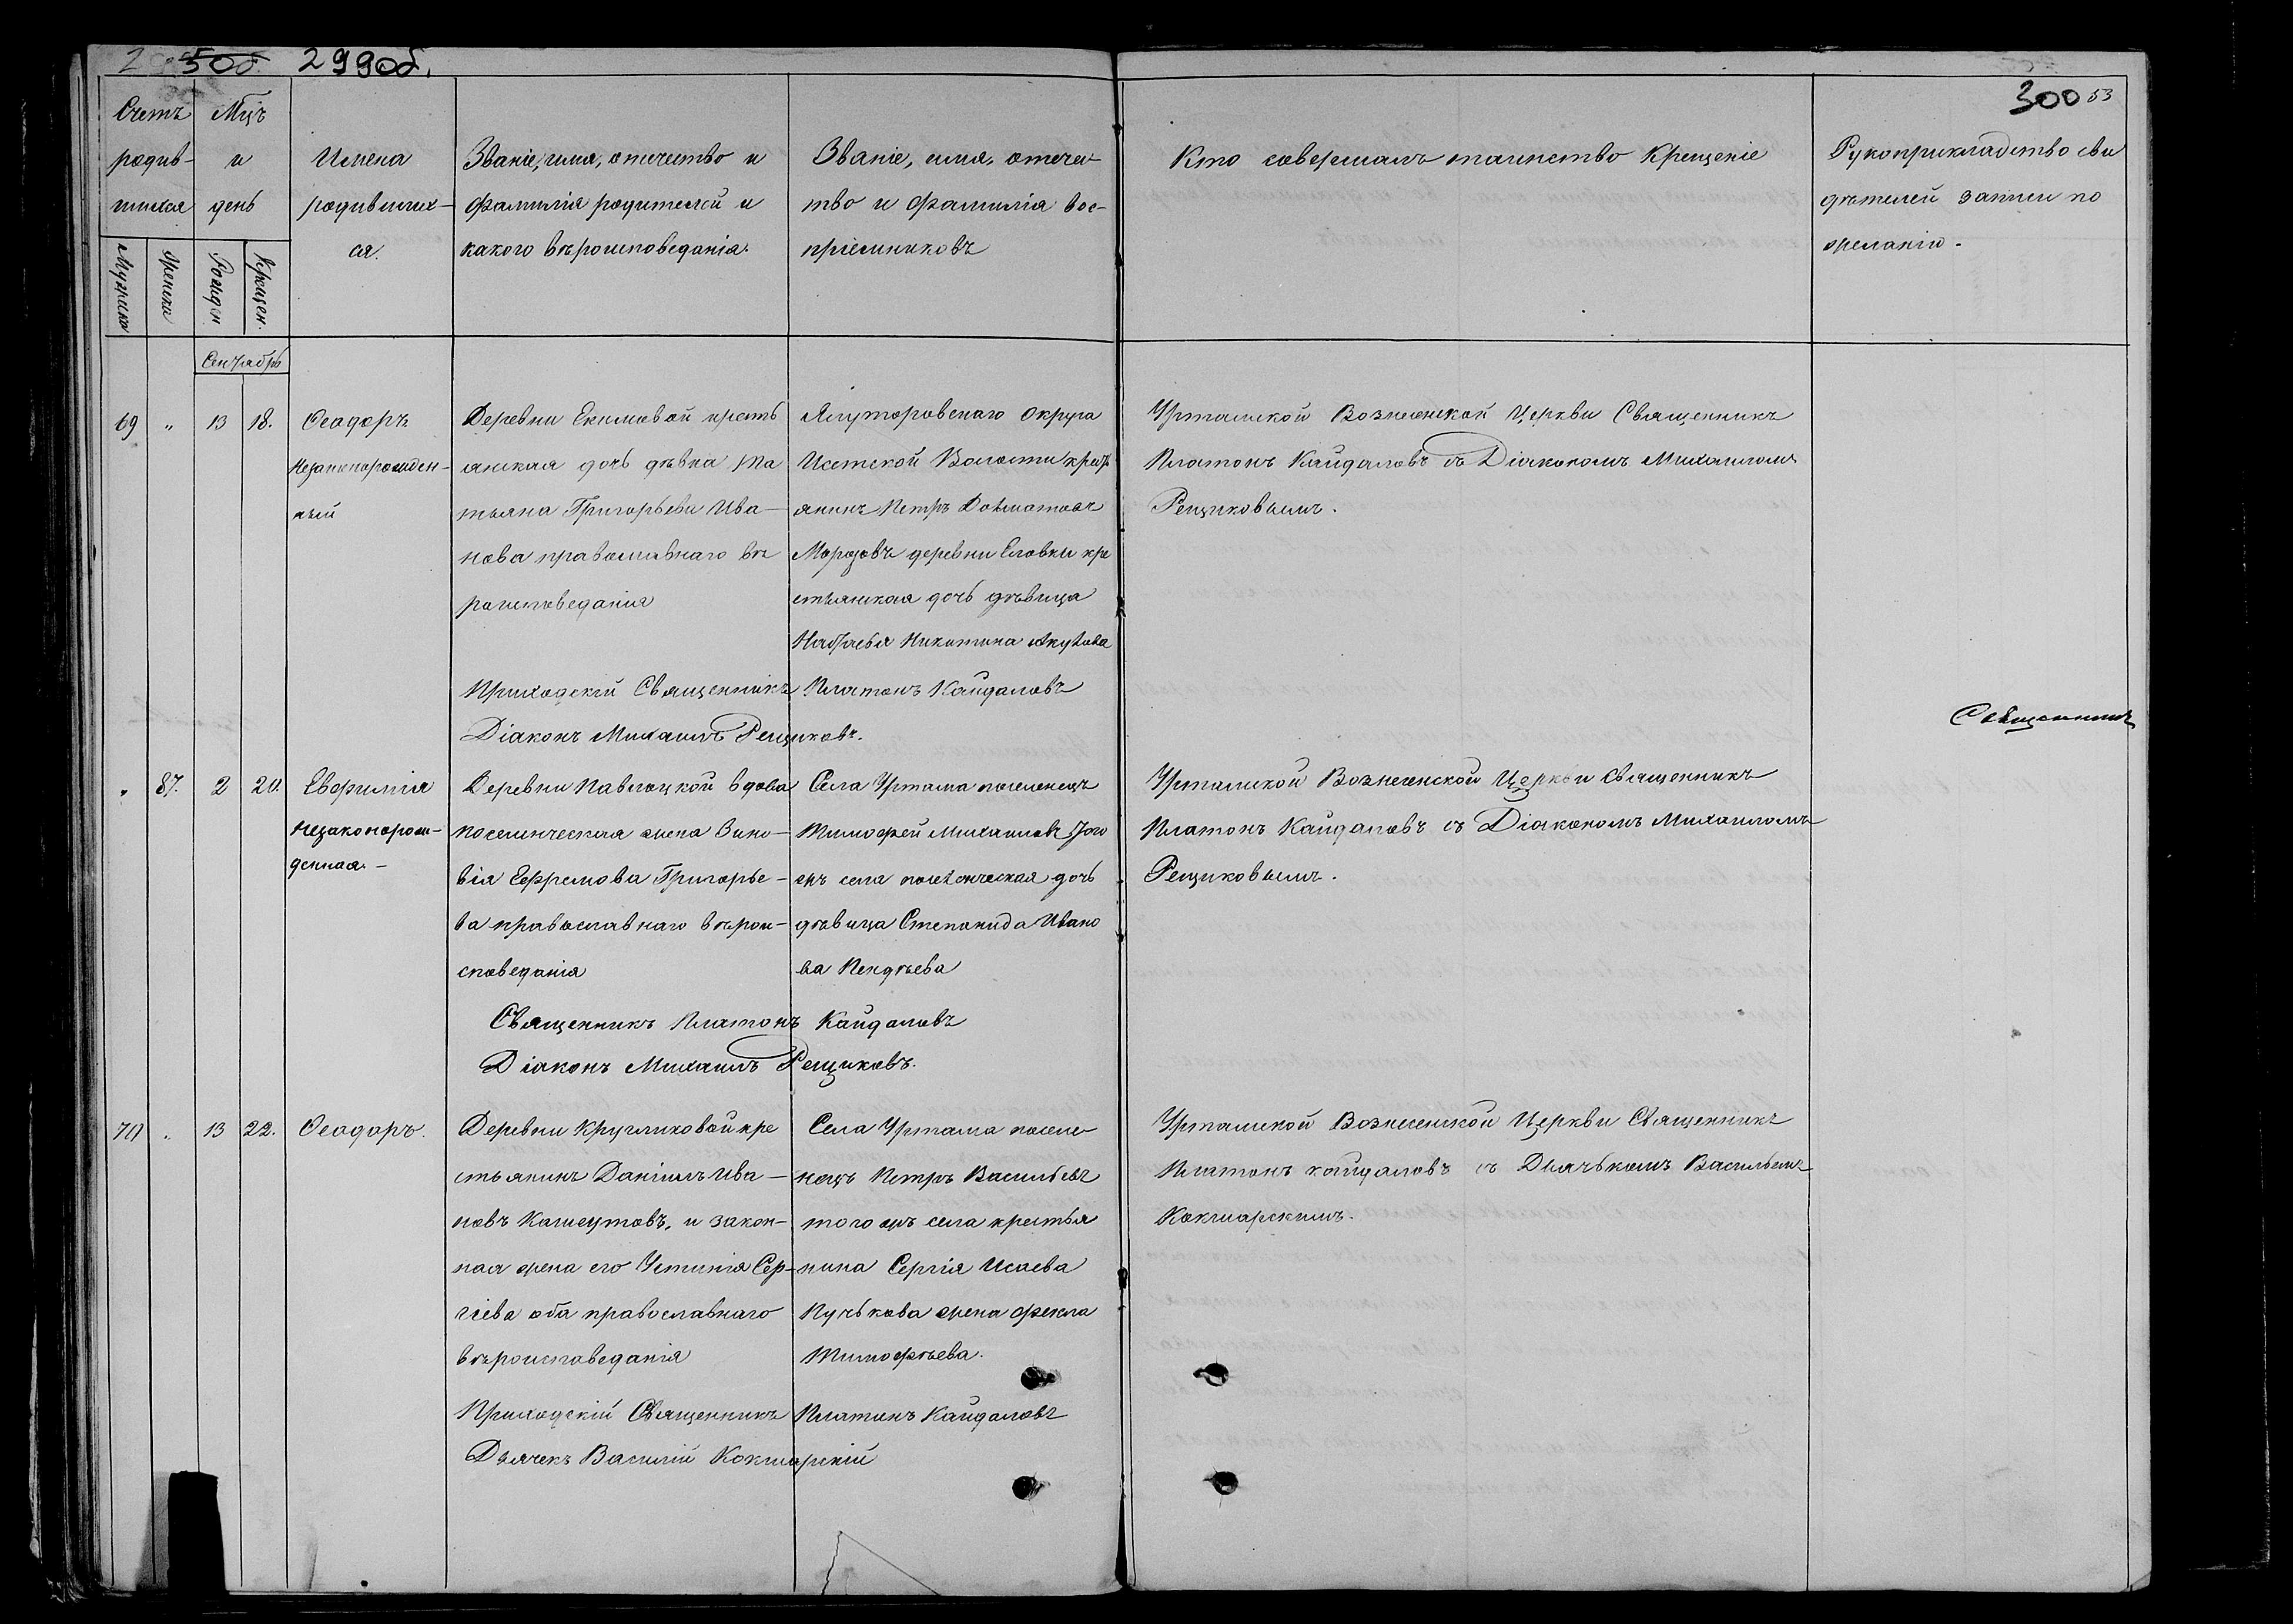 50б. 299об.
300 53
Счетъ
родив-
шихся
Мужеска
Женска
Мцъ
и
день
Рожден.
Крещен.
Имена
родивших-
ся.
Званіе, имя, отчество и
фамилія родителей и
какого вѣроисповеданія.
Званіе, имя, отчес-
тво и фамилія вос-
пріемниковъ
Кто совершалъ таинство Крещеніе
Рукоприкладство сви
дѣтелей записи по
желанію.
Сентябрь
69 " 13 18.
Ѳеодоръ
Незаконорожден-
ный
Деревни Екимовой кресть
янская дочь дѣвка Та
тьяна Григорьева Ива-
нова православнаго вѣ
роисповеданія
Ялуторовскаго Округа
Исетской Волости крест
янинъ Петръ Довматовъ
Морозовъ деревни Еловки кре
стьянская дочь дѣвица
Настасья Никитина Акулова
Уртамской Вознесенской Церкви Священникъ
Платонъ Кайдаловъ съ Діакономъ Михаиломъ
Рещиковымъ.
Приходскій Священникъ Платонъ Кайдаловъ
Діаконъ Михаилъ Рещиковъ.
Священникъ
" 87. 2 20.
Евфимія
Незаконорож-
денная.-
Деревни Павлоцкой вдова
поселенческая жена Зино-
вія Ефремова Григорье-
ва православнаго вѣрои-
споведанія
Села Уртама поселенецъ
Тимофей Михаиловъ того
жъ села поселенческая дочь
дѣвица Степонида Ивано
ва Пендѣева
Уртамской Вознесенской Церкви Священникъ
Платонъ Кайдаловъ съ Діакономъ Михаиломъ
Рещиковымъ.
Священникъ Платонъ Кайдаловъ
Діаконъ Михаилъ Рещиковъ.
70 " 13 22.
Ѳеодоръ.
Деревни Кругликовой кре
стьянинъ Даніилъ Ива-
новъ Кашеутовъ, и закон-
ная жена его Устинія Сер-
гіева оба православнаго
вѣроисповеданія
Села Уртама поселе
нецъ Петръ Васильевъ
того жъ села крестья
нина Сергія Исаева
Пучькова жена Фекла
Тимофѣева.
Уртамской Вознесенской Церкви Священникъ
Платонъ Кайдаловъ съ Дьячькомъ Васильемъ
Кокшарскимъ.
Приходскій Священникъ Платонъ Кайдаловъ
Дьячекъ Василій Кокшарскій